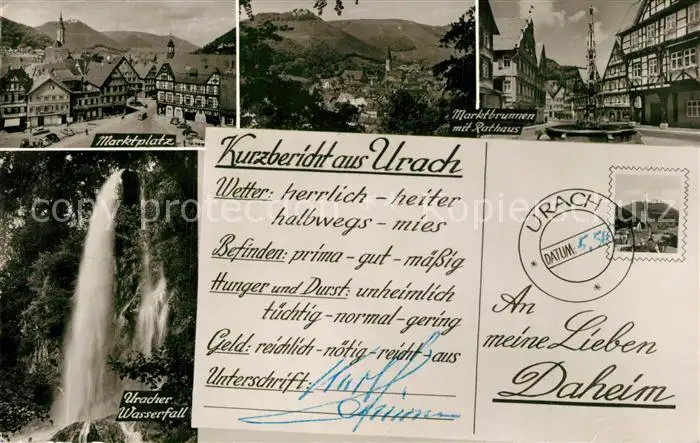 Marktplatz
Marktbrunnen
mit Rathaus
Uracher
Wasserfall
Kurzbericht aus Urach
Wetter: herrlich - heiter
halbwegs - mies
Befinden: prima - gut - mäßig
Hunger und Durst: unheimlich
tüchtig - normal - gering
Geld: reichlich - nötig - reicht aus
Unterschrift:
URACH
DATUM:
An
meine Lieben
Daheim